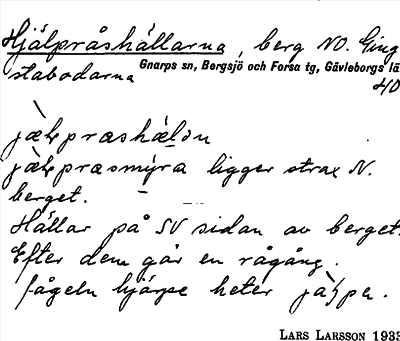 Hjälpråshällarna, berg NO. Ging
stabodarna Gnarps sn, Bergsjö och Forsa tg, Gävleborgs lä
HO
jælpræshælɔn
jælpræsmyra ligger strax N.
berget.
Hällar på SV sidan av berget.
Efter dem går en rågång.
fågeln hjärpe heter
LARS LARSSON 1933